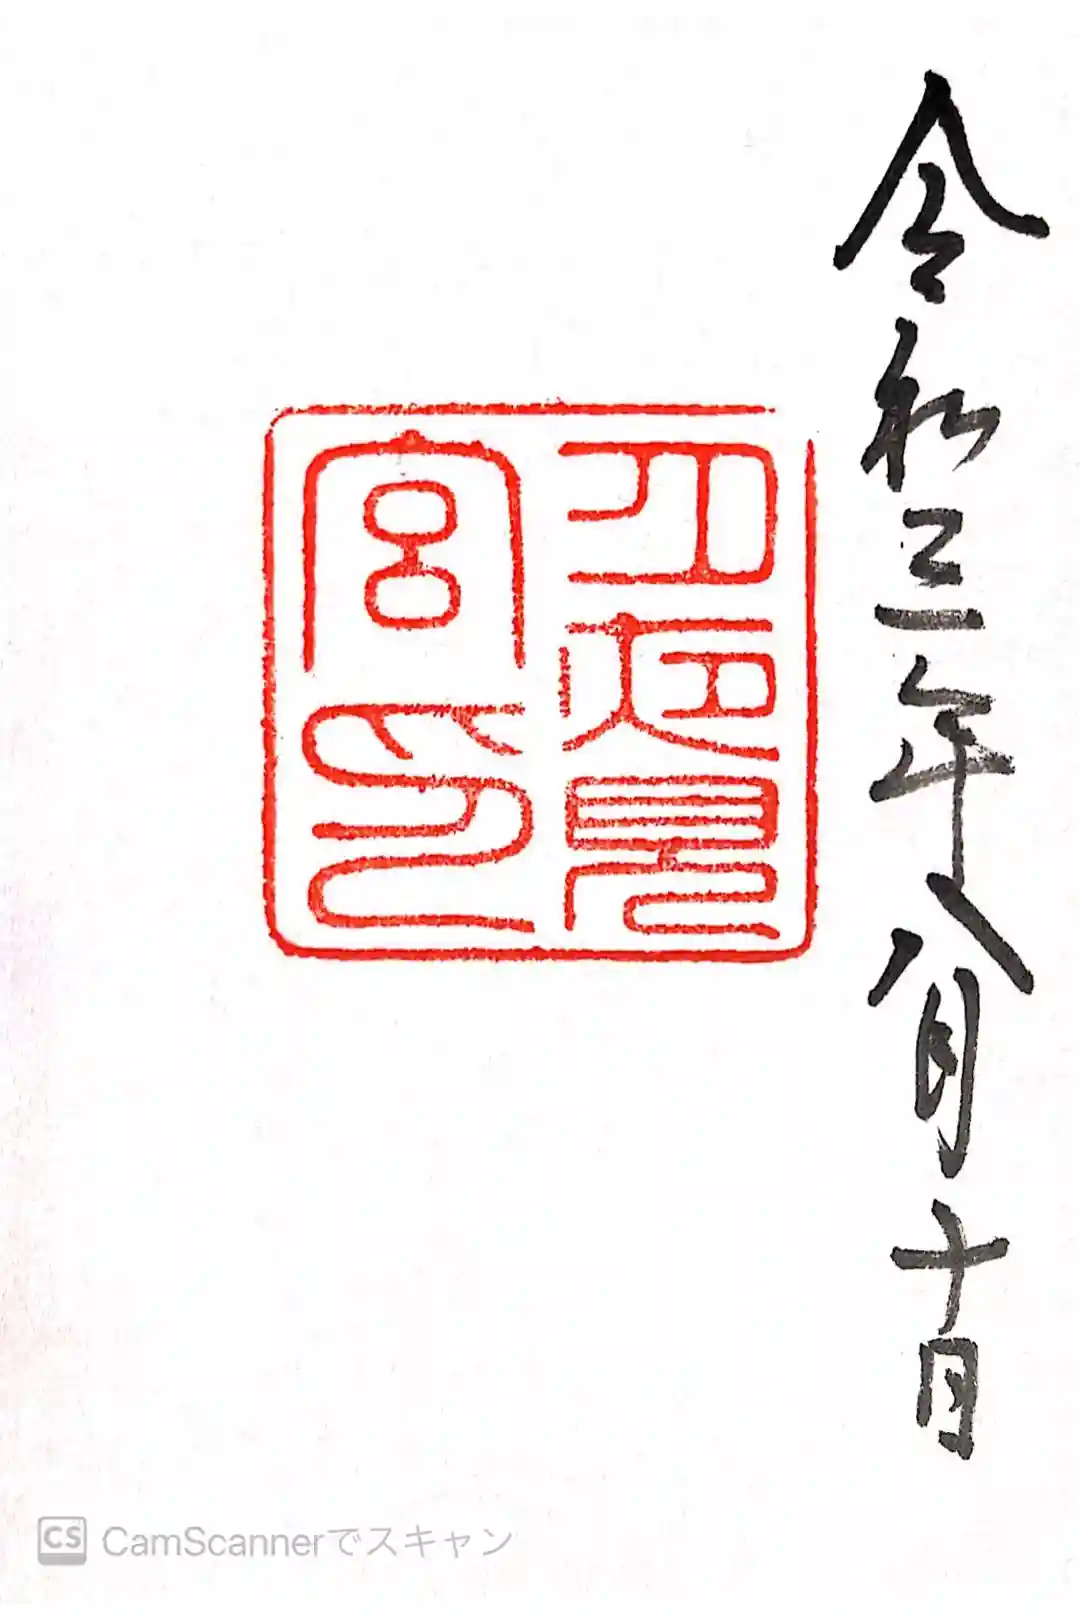 令和三年八月十日
月夜見
宮印
CS CamScannerでスキャン